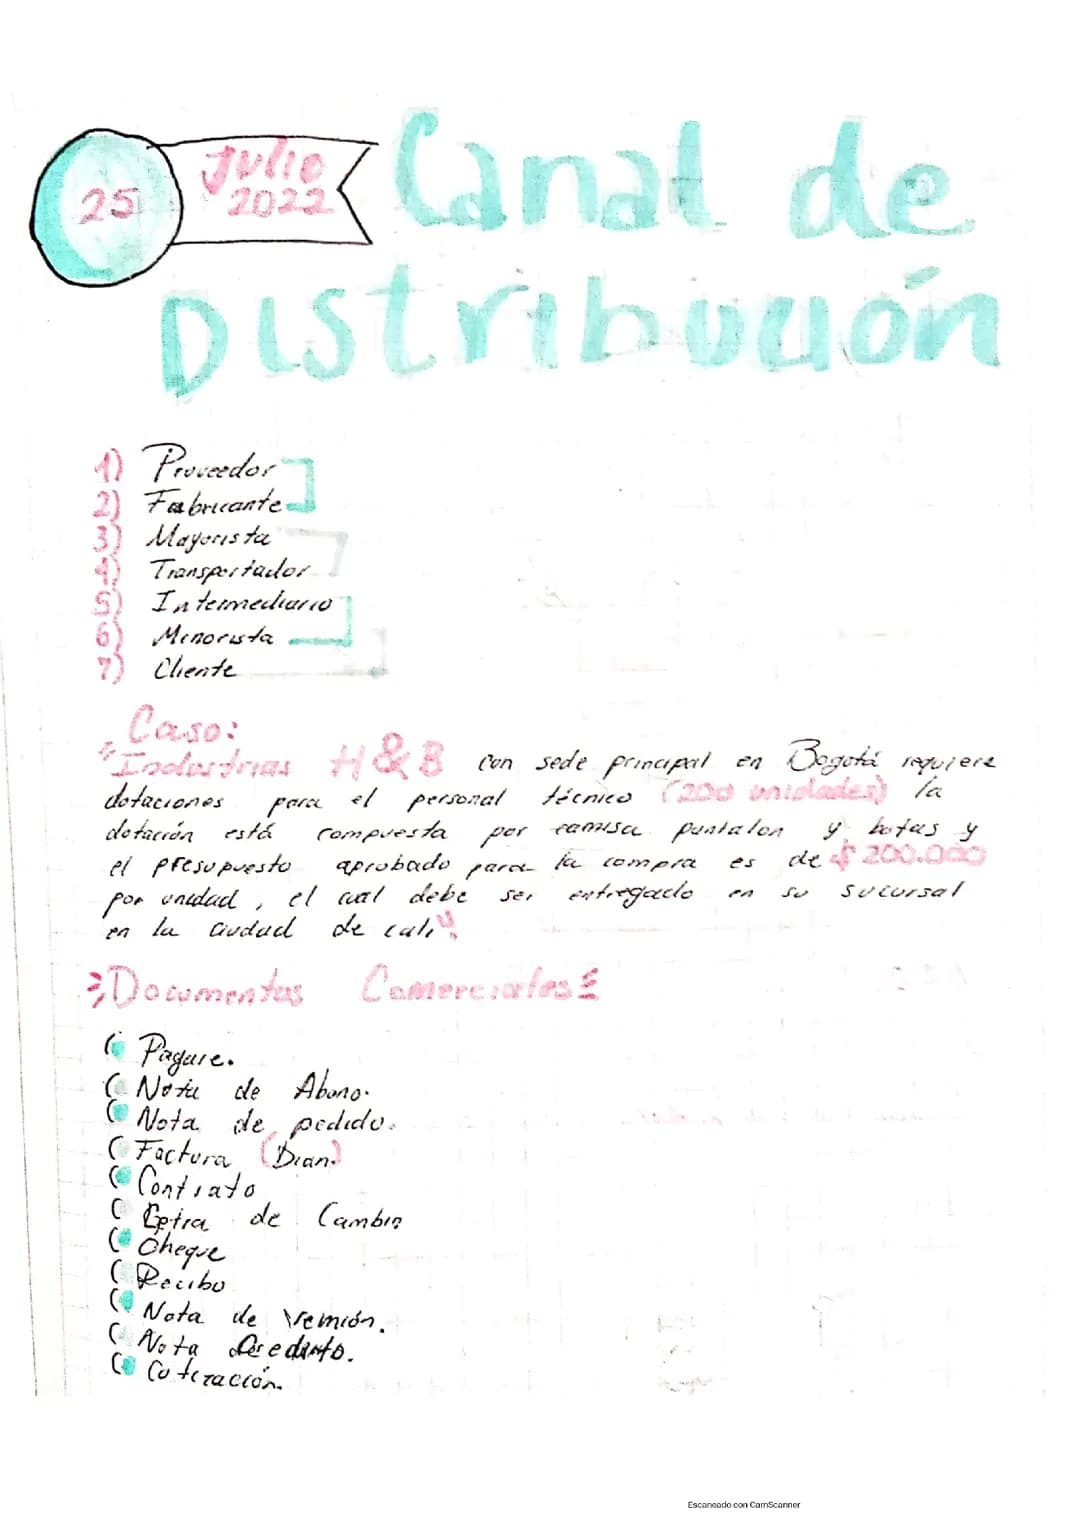 25
Julio
2022
Canal de
Distribución
1) Proveedor
2) Fabricante
3) Mayorista
4) Transportador
5) Intermediario
6) Minorista
7) Cliente
Caso:
"Industrias H&B con sede principal en Bogotá requiere
dotaciones para el personal técnico (200 unidades) la
dotación está compuesta por camisa pantalon y botas y
el presupuesto aprobado para la compra es de $ 200.000
por unidad, el cual debe ser entregado en su sucursal
en la ciudad de cali"
Documentos Comerciales
Pagare.
Nota de Abono.
Nota de pedido.
Factura (Dian)
Contrato
Letra de Cambio
Cheque
Recibo
Nota de remión.
Nota
Cotización.
Escaneado con CamScanner